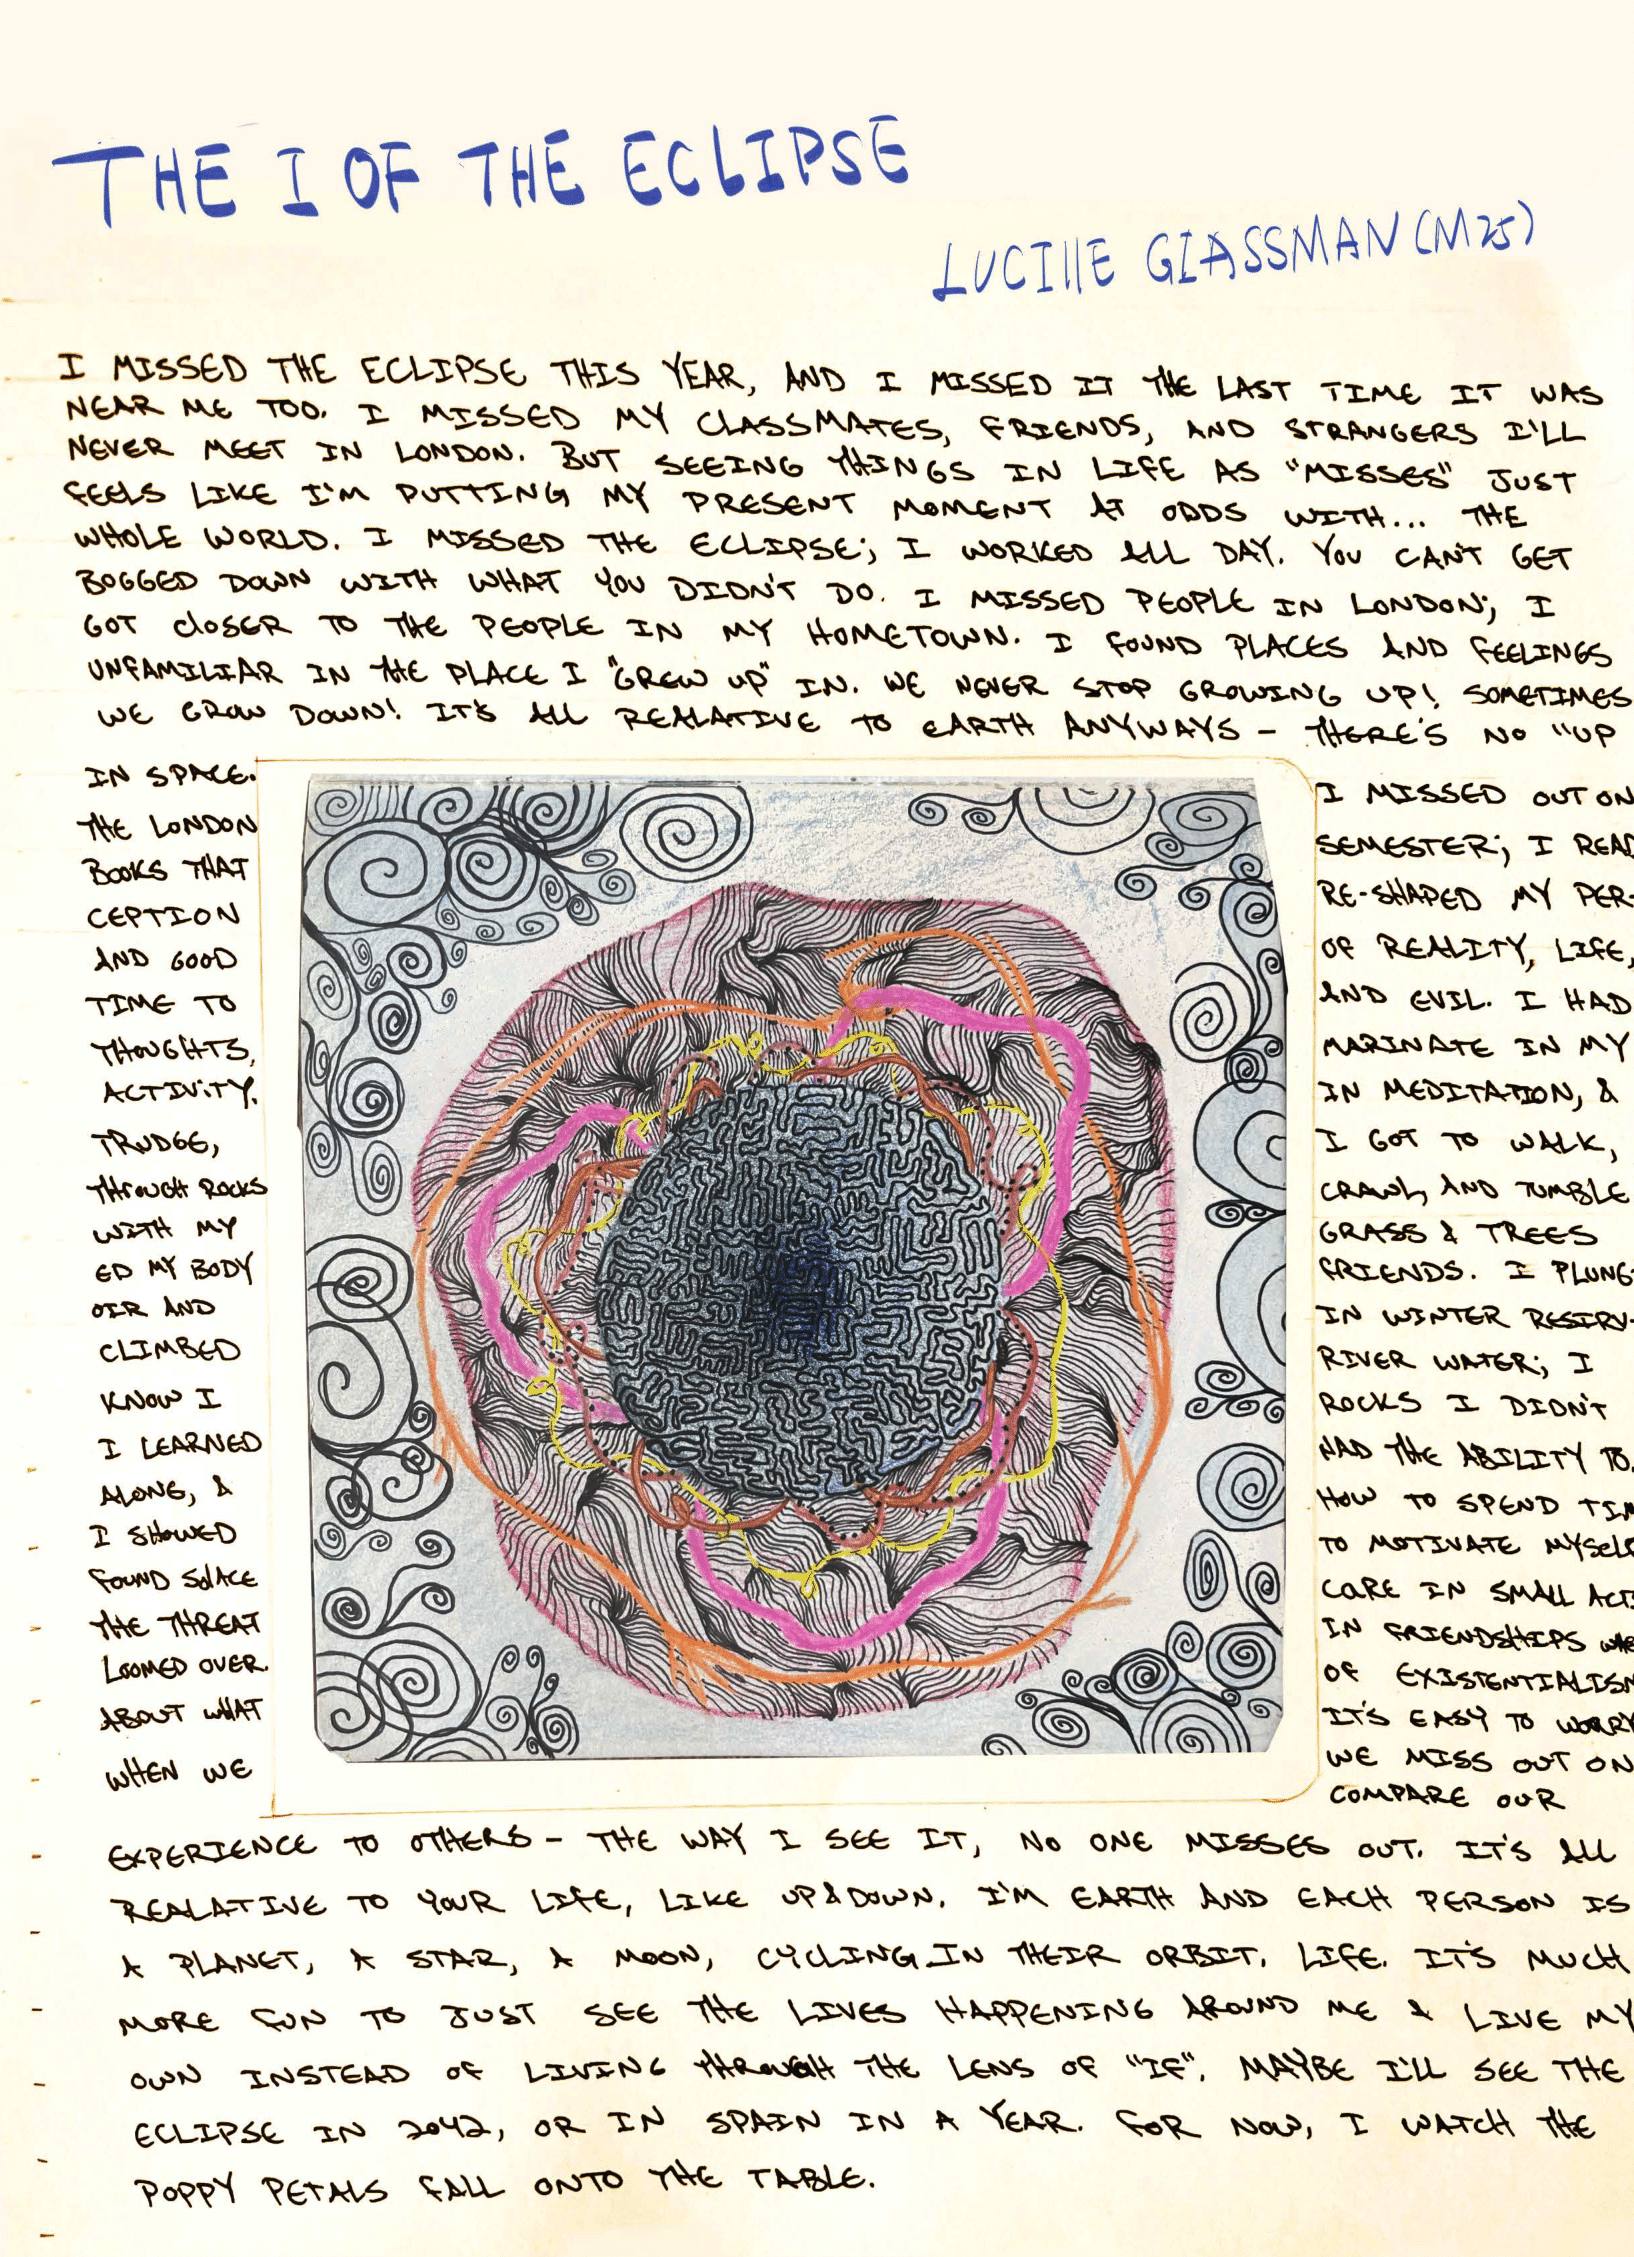 THE I OF THE ECLIPSE
LUCIllE GlASSMAN (M25)
I MISSED THE ECLIPSE THIS YEAR, AND I MISSED IT THE LAST TIME IT WAS
NEAR ME TOO. I MISSED MY CLASSMATES, FRIENDS, AND STRANGERS I'LL
NEVER MEET IN LONDON. BUT SEEING THINGS IN LIFE AS "MISSES" JUST
FEELS LIKE I'M PUTTING MY PRESENT MOMENT AT ODDS WITH... THE
WHOLE WORLD. I MISSED THE ECLIPSE; I WORKED ALL DAY. YOU CAN'T GET
BOGGED DOWN WITH WHAT YOU DIDN'T DO. I MISSED PEOPLE IN LONDON; I
GOT CLOSER TO THE PEOPLE IN MY HOMETOWN. I FOUND PLACES AND FEELINGS
UNFAMILIAR IN THE PLACE I "GREW UP" IN. WE NEVER STOP GROWING UP! SOMETIMES
WE GROW DOWN! IT'S ALL REALATIVE TO EARTH ANYWAYS - THERE'S NO "UP
IN SPACE. I MISSED OUT ON
THE LONDON SEMESTER; I READ
BOOKS THAT RE-SHAPED MY PER-
CEPTION OF REALITY, LIFE,
AND GOOD AND EVIL. I HAD
TIME TO MARINATE IN MY
THOUGHTS, IN MEDITATION, &
ACTIVITY. I GOT TO WALK,
TRUDGE, CRAWL, AND TUMBLE
THROUGH ROCKS GRASS & TREES
WITH MY FRIENDS. I PLUNG-
ED MY BODY IN WINTER RESIRV-
OIR AND RIVER WATER; I
CLIMBED ROCKS I DIDN'T
KNOW I HAD THE ABILITY TO.
I LEARNED HOW TO SPEND TIM
ALONE, & TO MOTIVATE MYSELF
I SHOWED CARE IN SMALL ACTS
FOUND SOLACE IN FRIENDSHIPS WHE
THE THREAT OF EXISTENTIALISM
LOOMED OVER. IT'S EASY TO WORRY
ABOUT WHAT WE MISS OUT ON
WHEN WE COMPARE OUR
EXPERIENCE TO OTHERS - THE WAY I SEE IT, NO ONE MISSES OUT. IT'S ALL
REALATIVE TO YOUR LIFE, LIKE UP & DOWN. I'M EARTH AND EACH PERSON IS
A PLANET, A STAR, A MOON, CYCLING IN THEIR ORBIT. LIFE. IT'S MUCH
MORE FUN TO JUST SEE THE LIVES HAPPENING AROUND ME & LIVE MY
OWN INSTEAD OF LIVING THROUGH THE LENS OF "IF". MAYBE I'LL SEE THE
ECLIPSE IN 2042, OR IN SPAIN IN A YEAR. FOR NOW, I WATCH THE
POPPY PETALS FALL ONTO THE TABLE.